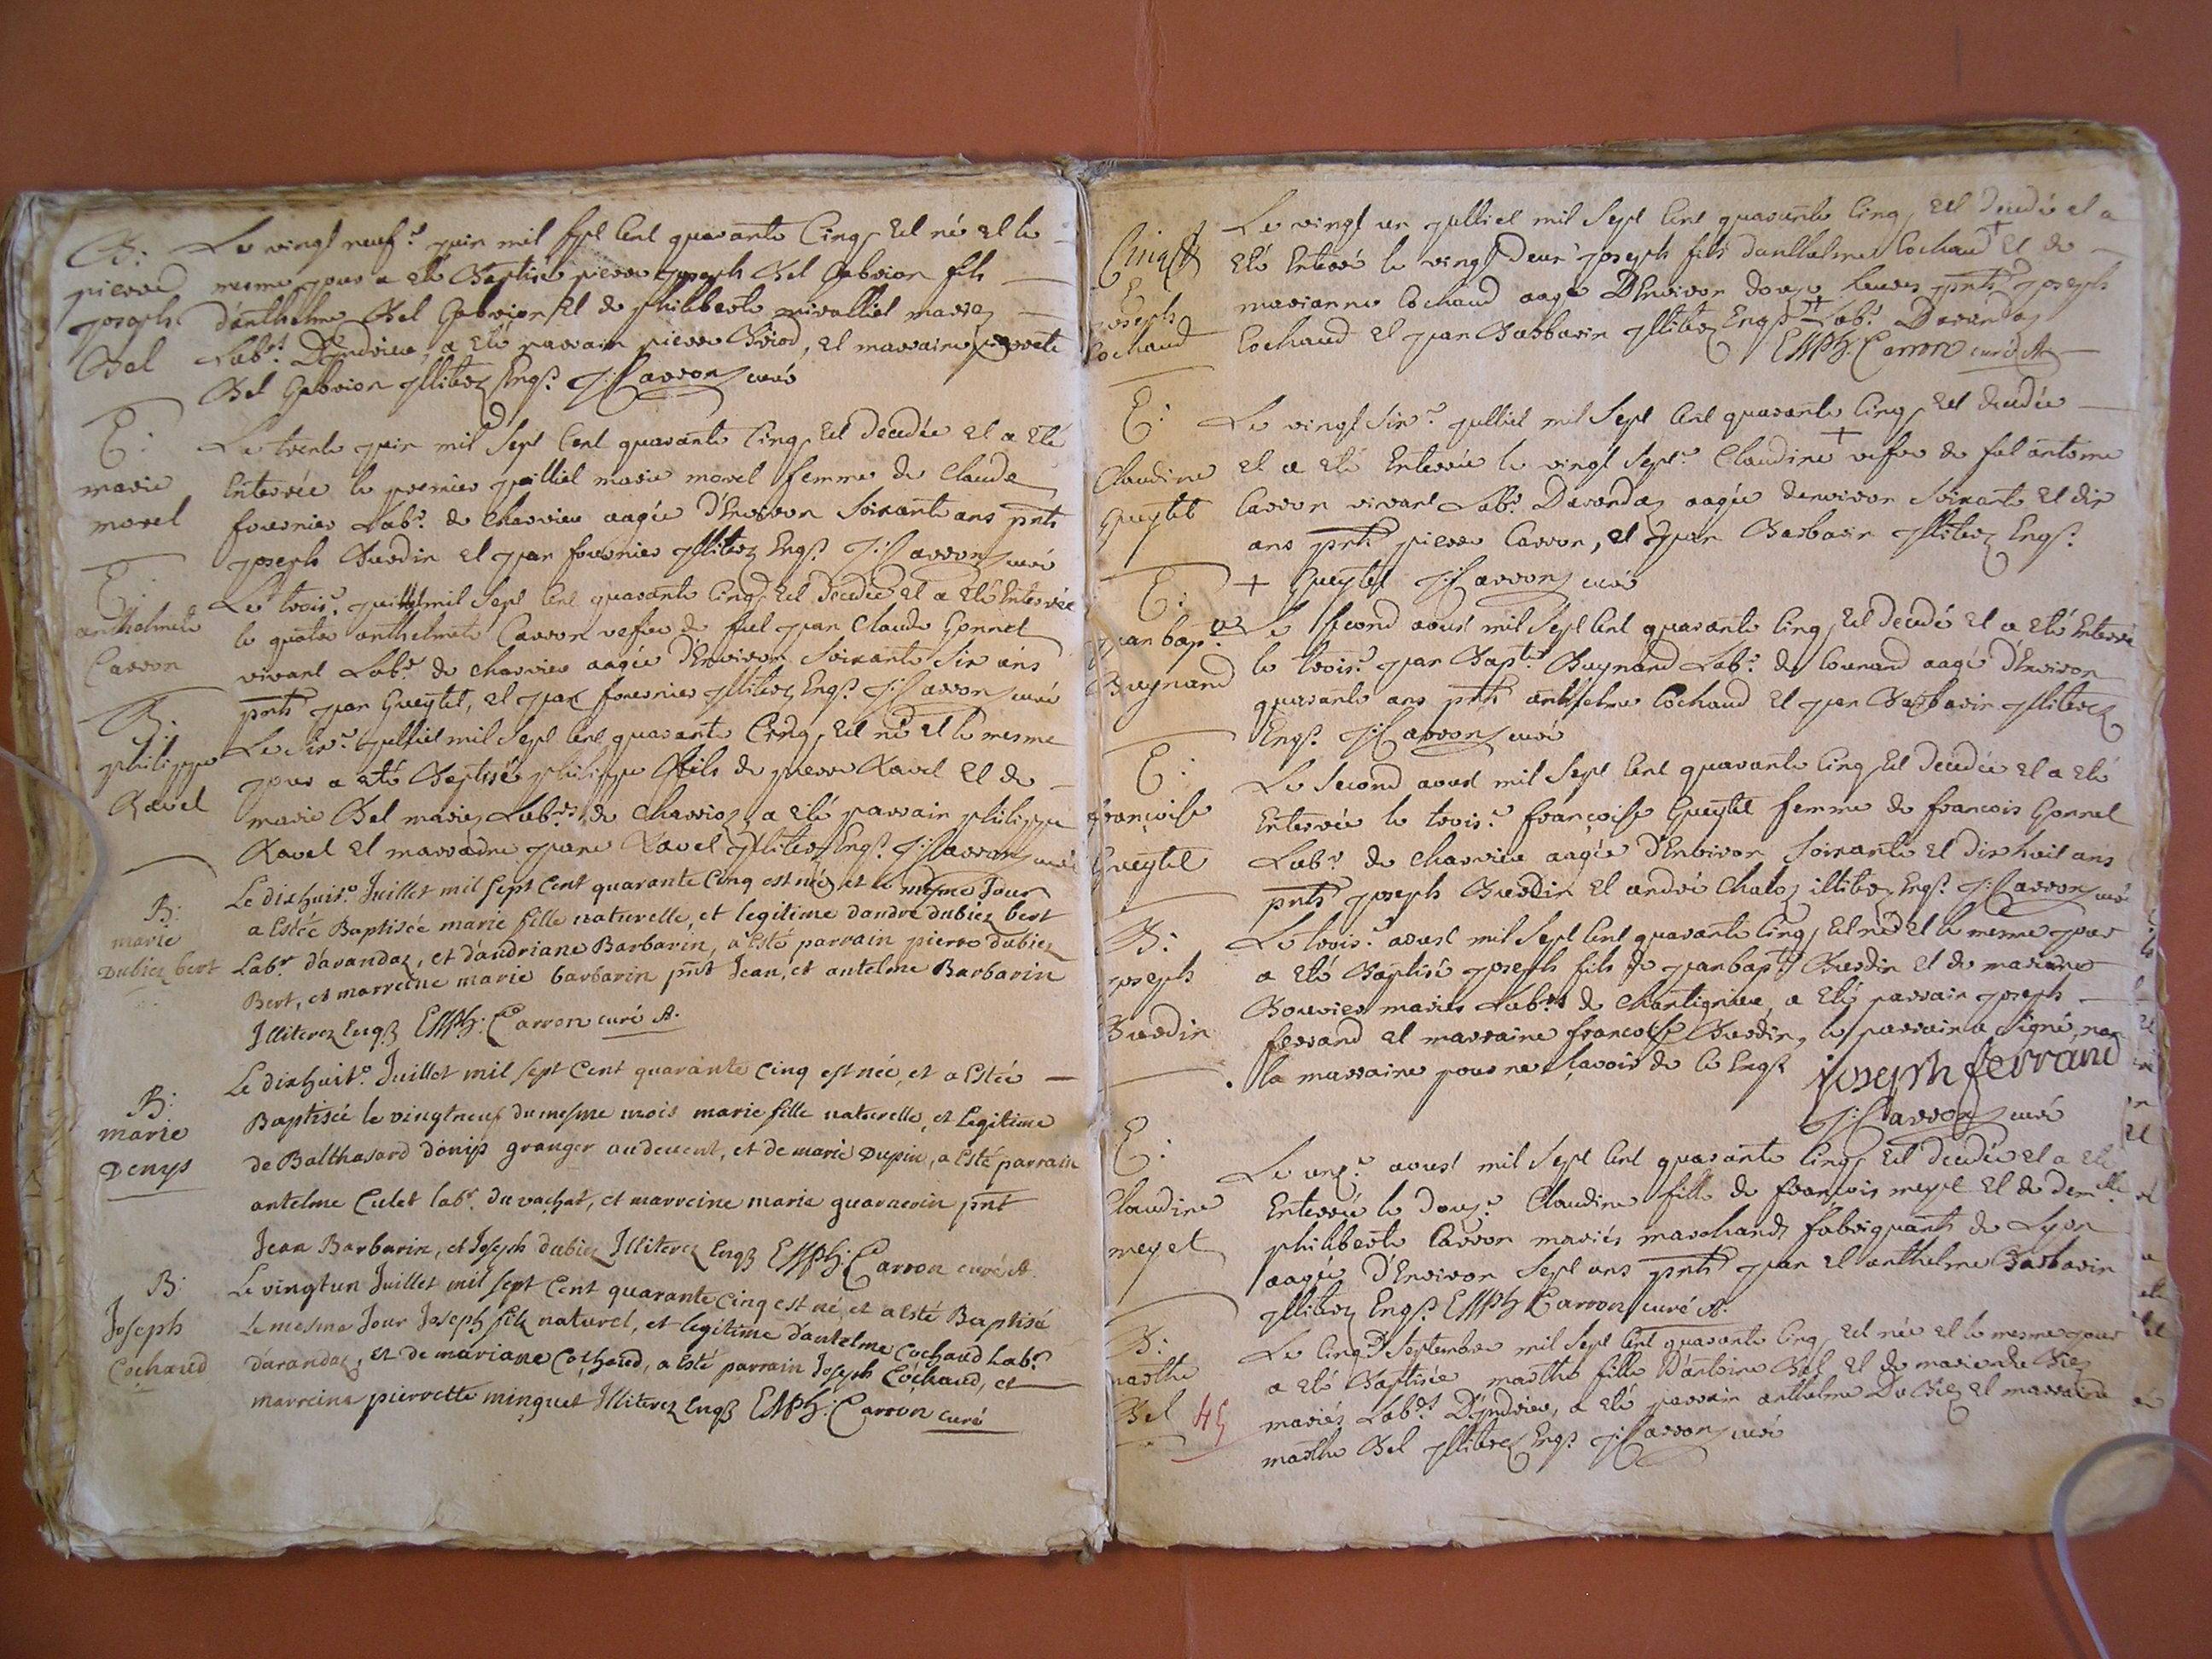 B:
pierre
joseph
Bel
Le vingt neuf.e juin mil sept cent quarante Cinq, Est né Et le
mesme jour a Eté Baptisé pierre joseph Bel Gabrion fils
d'anthelme Bel Gabrion Et de philiberte mivalliet mariez
Labrs. D'Indrieu, a Eté parrain pierre Briod, et marraine pierrette
Bel Gabrion jlliterez Enqs. J: Carron curé
E:
marie
morel
Le trente juin mil Sept Cent quarante Cinq, Est decedée Et a Eté
Enterrée le premier juilliet marie morel femme de Claude
fournier Labr. de Charvieu aagée d'Environ Soixante ans pnts
joseph Burdin et jean fournier jlliterez Enqs. J: Carron curé
E:
anthelmete
Carron
Le trois.e juillet mil Sept Cent quarante Cinq, Est Decedée Et a Eté Enterrée
le quatre anthelmete Carron vefve de fut jean Claude Gonnet
vivant Labr. de Charvieu aagée d'Environ Soixante Six ans
pnts jean Gueytet, et jean fournier jlliterez Enqs. J: Carron curé
B:
philippe
Ravel
Le Six.e julliet mil Sept Cent quarante Cinq, Est né Et le mesme
jour a Eté Baptisé philippe fils de pierre Ravel Et de
marie Bel mariez Labrs. de Charvioz, a Eté parrain philippe
Ravel et marraine jeane Ravel jlliterez Enqs. J: Carron curé
B:
marie
Dubiez bert
Le dixhuit.e Juillet mil sept Cent quarante Cinq est née et le mesme Jour
a Estée Baptisée marie fille naturelle, et legitime dandré dubiez bert
Labr. d'arandaz, et d'andriane Barbarin, a Esté parrain pierre dubiez
Bert, et marreine marie barbarin pnt Jean, et antelme Barbarin
Illiterez Enqs EMph: Carron curé A.
B:
marie
Denys
Le dixhuit.e Juillet mil sept Cent quarante Cinq est née, et a Estée
Baptisée le vingtneuf du mesme mois marie fille naturelle, et Legitime
de Balthasard denis granger au devent, et de marie Dupin, a Esté parrain
antelme Culet labr. du vachat, et marreine marie guarnerin pnt
Jean Barbarin, et Joseph dubiez Illiterez Enqs EMph: Carron curé A.
B:
Joseph
Cochaud
Le vingtun Juillet mil sept Cent quarante Cinq est né, et a Esté Baptisé
Le mesme Jour Joseph filz naturel, et legitime d'antelme Cochaud Labr.
d'arandaz, et de mariane Cochaud, a Esté parrain Joseph Cochaud, et
marreine pierrette minguet Illiterez Enqs EMph: Carron curé
E
joseph
Cochaud
Le vingt un julliet mil Sept Cent quarante Cinq, Est Decedé et a
Eté Enterré le vingt Deux joseph fils d'anthelme Cochaud + Et de
marianne Cochaud aagé D'Environ douze heures pnts joseph
Cochaud et jean Barbarin jlliterez Enqs + Labr. Darandaz
EMph: Carron curé A.
E:
Claudine
Gueytet
Le vingt Six.e julliet mil Sept Cent quarante Cinq, Est decedée
et a Eté Enterrée le vingt Sept.e Claudine + vefve de fut antoine
Carron vivant Labr. Darandaz aagée denviron Soixante Et dix
ans pnts pierre Carron, et jean Barbarin jlliterez Enqs.
+ Gueytet J: Carron curé
E:
jean bapt.e
Buynand
Le Second aoust mil Sept Cent quarante Cinq, Est Decedé et a Eté Enterré
le trois.e jean Bapt.e Buynand Labr. de Counand aagé d'Environ
quarante ans pnts anthelme Cochaud et jean Barbarin jlliterez
Enqs. J: Carron curé
E:
françoise
Gueytet
Le Second aoust mil Sept Cent quarante Cinq, Est Decedée Et a Eté
Enterrée le trois.e françoise Gueytet femme de francois Gonnet
Labr. de Charvieu aagée d'Environ Soixante Et dixhuit ans
pnts joseph Burdin Et andré Chaloz illiterez Enqs. J: Carron curé
B:
joseph
Burdin
Le trois.e aoust mil Sept Cent quarante Cinq, Est né Et le mesme jour
a Eté Baptisé joseph fils de jean bapt.e Burdin et de mariane
Bouvier mariés Labrs. de Chantignieu, a Eté parrain joseph
ferrand et marraine francoise Burdin, le parrain a signé, non
la marraine pour ne sçavoir de ce Enqs joseph ferrand
J: Carron curé
E:
Claudine
meyet
Le unz.e aoust mil Sept Cent quarante Cinq, Est decedée et a Eté
Enterrée le Douz.e Claudine fille de francois meyet Et de demlle.
philiberte Carron mariés marchands fabriquants de Lyon
aagée d'Environ Sept ans pnts jean et anthelme Barbarin
jlliterez Enqs. EMph: Carron curé A.
B:
marthe
Bel
45
Le Cinq.e Septembre mil Sept Cent quarante Cinq, Est née Et le mesme jour
a Eté Baptisée marthe fille D'antoine Bel Et de marie du Biez
mariés Labrs. D'Indrieu, a Eté parrain anthelme Du Biez et marraine
marthe Bel jlliterez Enqs. J: Carron curé